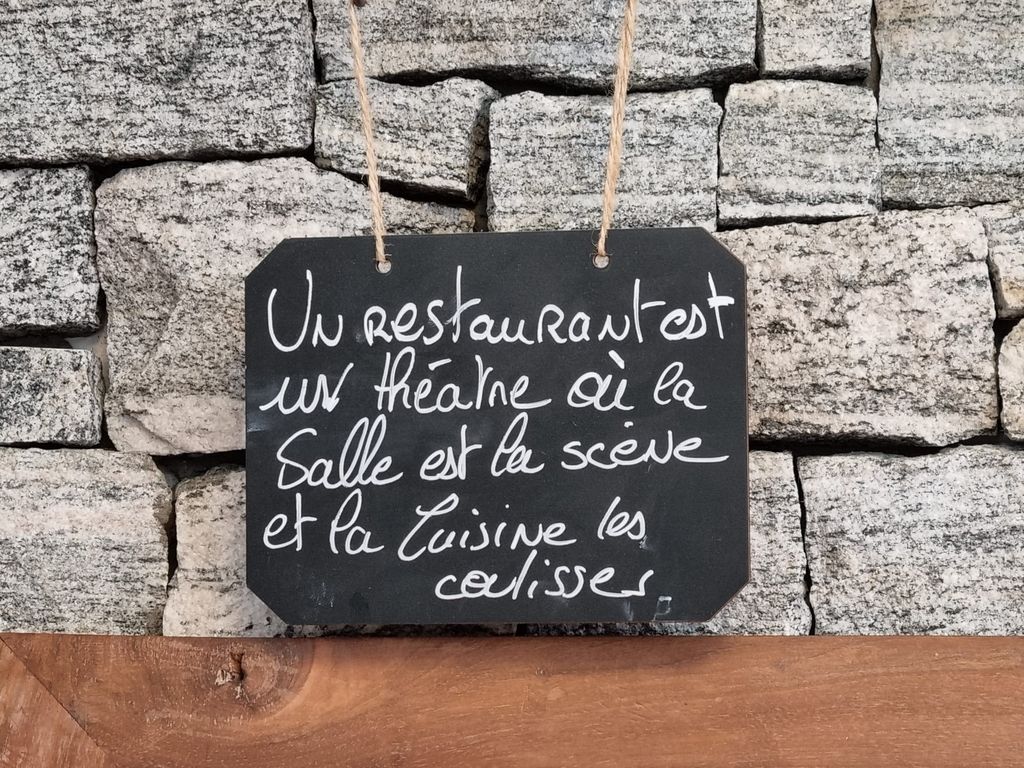 Un restaurant est
un théatre où la
Salle est la scène
et la Cuisine les
coulisses